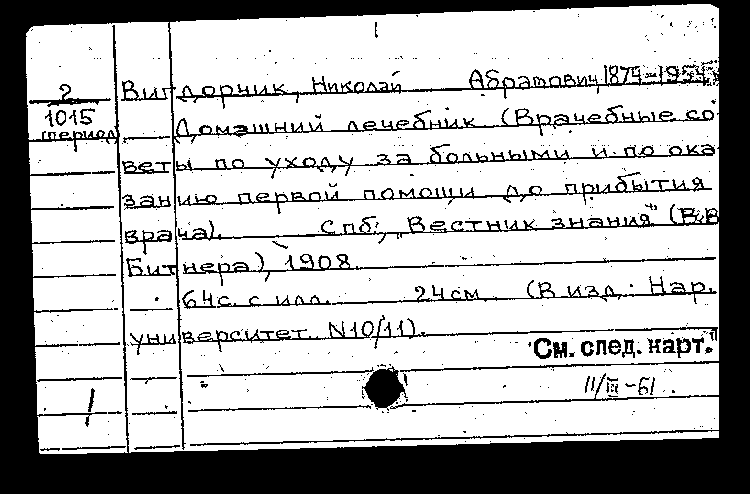 2
1015
(период)
Вигдорчик, Николай Абрамович, 1874-1954
Домашний лечебник (Врачебные со
веты по уходу за больными и по ока
занию первой помощи до прибытия
врача). Спб., "Вестник знания" (В.В
Битнера), 1908
64с. с илл. 24см (В изд.: Нар.
университет N10/11).
См. след. карт."
11/III-61.